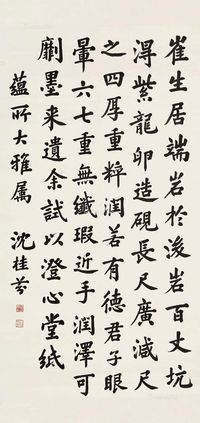 崔生居端岩於後岩百丈坑
得紫龍卵造硯長尺廣減尺
之四厚重粹潤若有德君子眼
暈六七重無纖瑕近手潤澤可
劘墨来遺余試以澄心堂紙
蘊所大雅属 沈桂芬